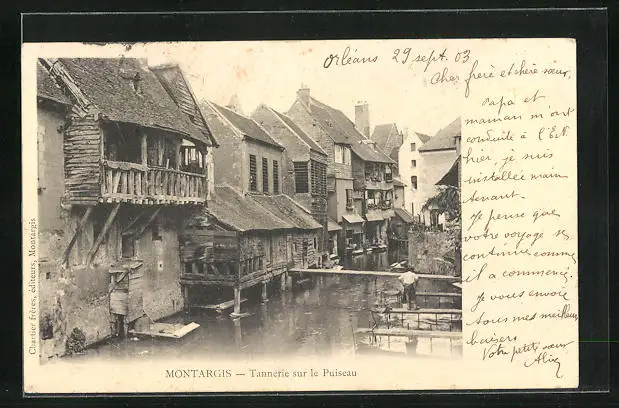 Orléans 29 sept. 03
Cher frère et chère sœur,
Papa et
maman m'ont
conduite à l'E.N
hier, je suis
installée main
tenant.
Je pense que
votre voyage se
continue comme
il a commencé.
Je vous envoie
tous mes meilleurs
baisers.
Votre petite sœur
Chartier frères, éditeurs, Montargis
MONTARGIS — Tannerie sur le Puiseau